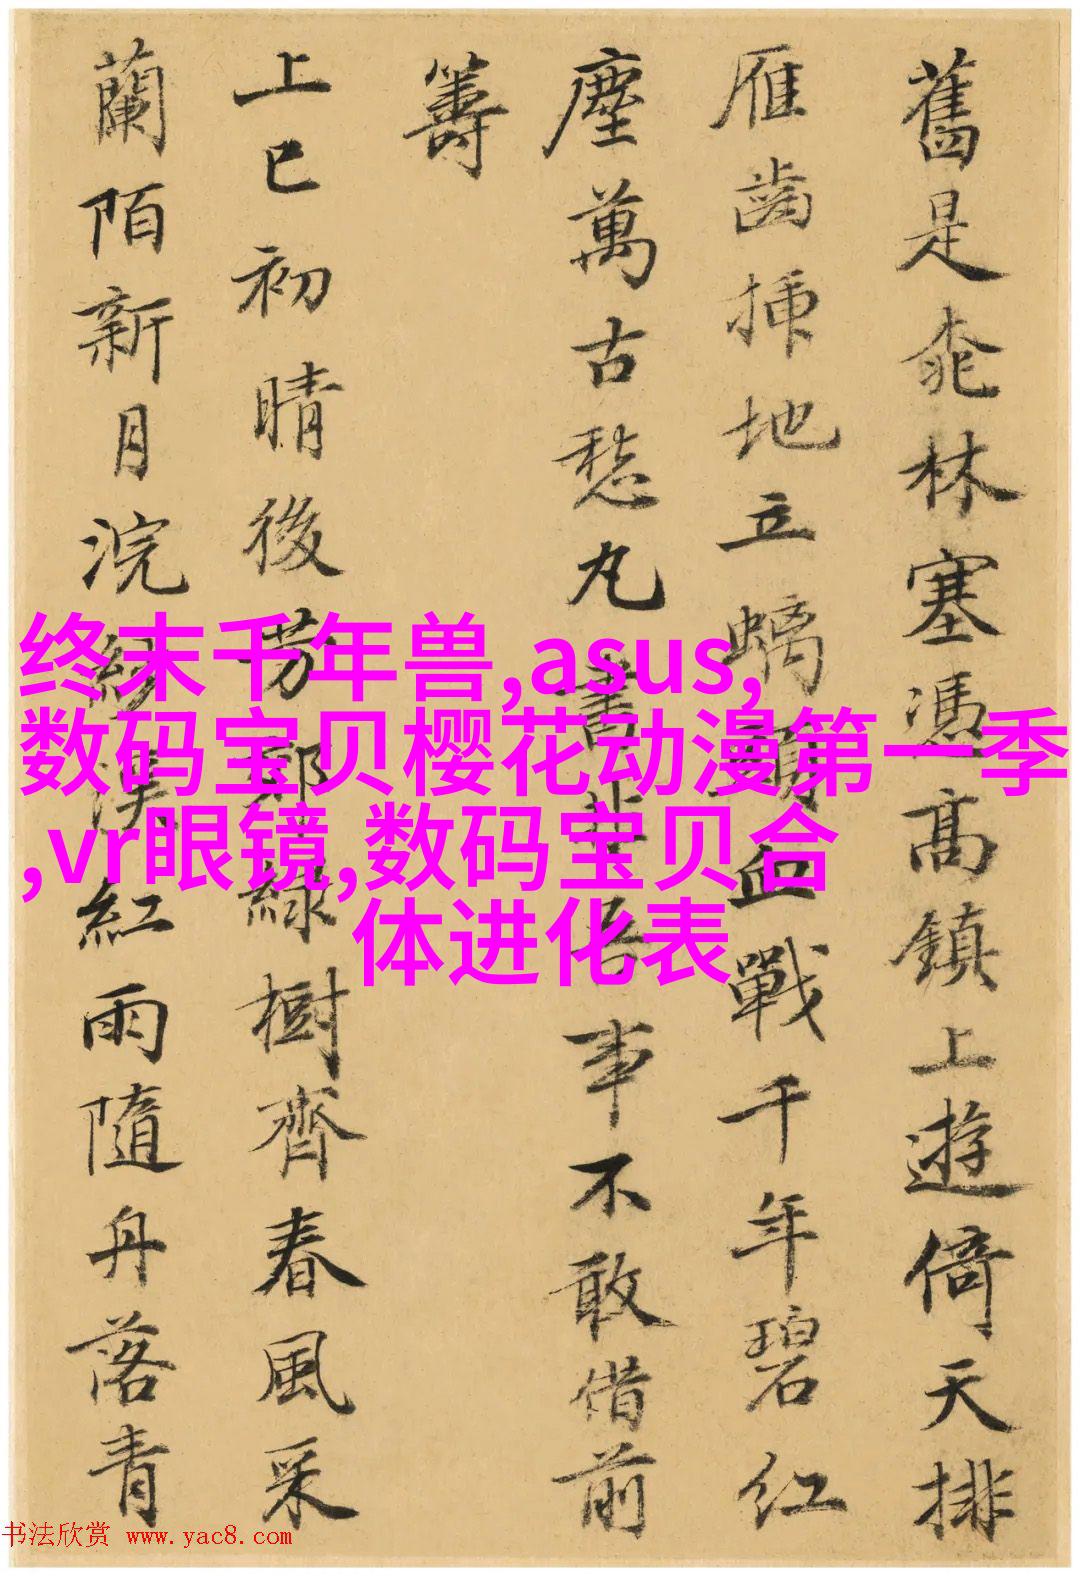 舊是桃林塞憑高鎮上遊倚天排
雁齒揷地立螭頭血戰千年碧紅
塵萬古愁丸書非吾事不敢借前
籌
上巳初晴後芳郊綠樹齊春風采
蘭陌新月浣紗溪紅雨隨舟落青
终末千年兽,asus,
数码宝贝樱花动漫第一季
,vr眼镜,数码宝贝合
体进化表
书法欣赏 www.yac8.com